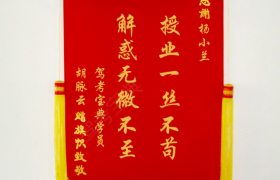 感谢杨小兰
授业一丝不苟
解惑无微不至
驾考宝典学员
胡脉云 赠旗帜致敬